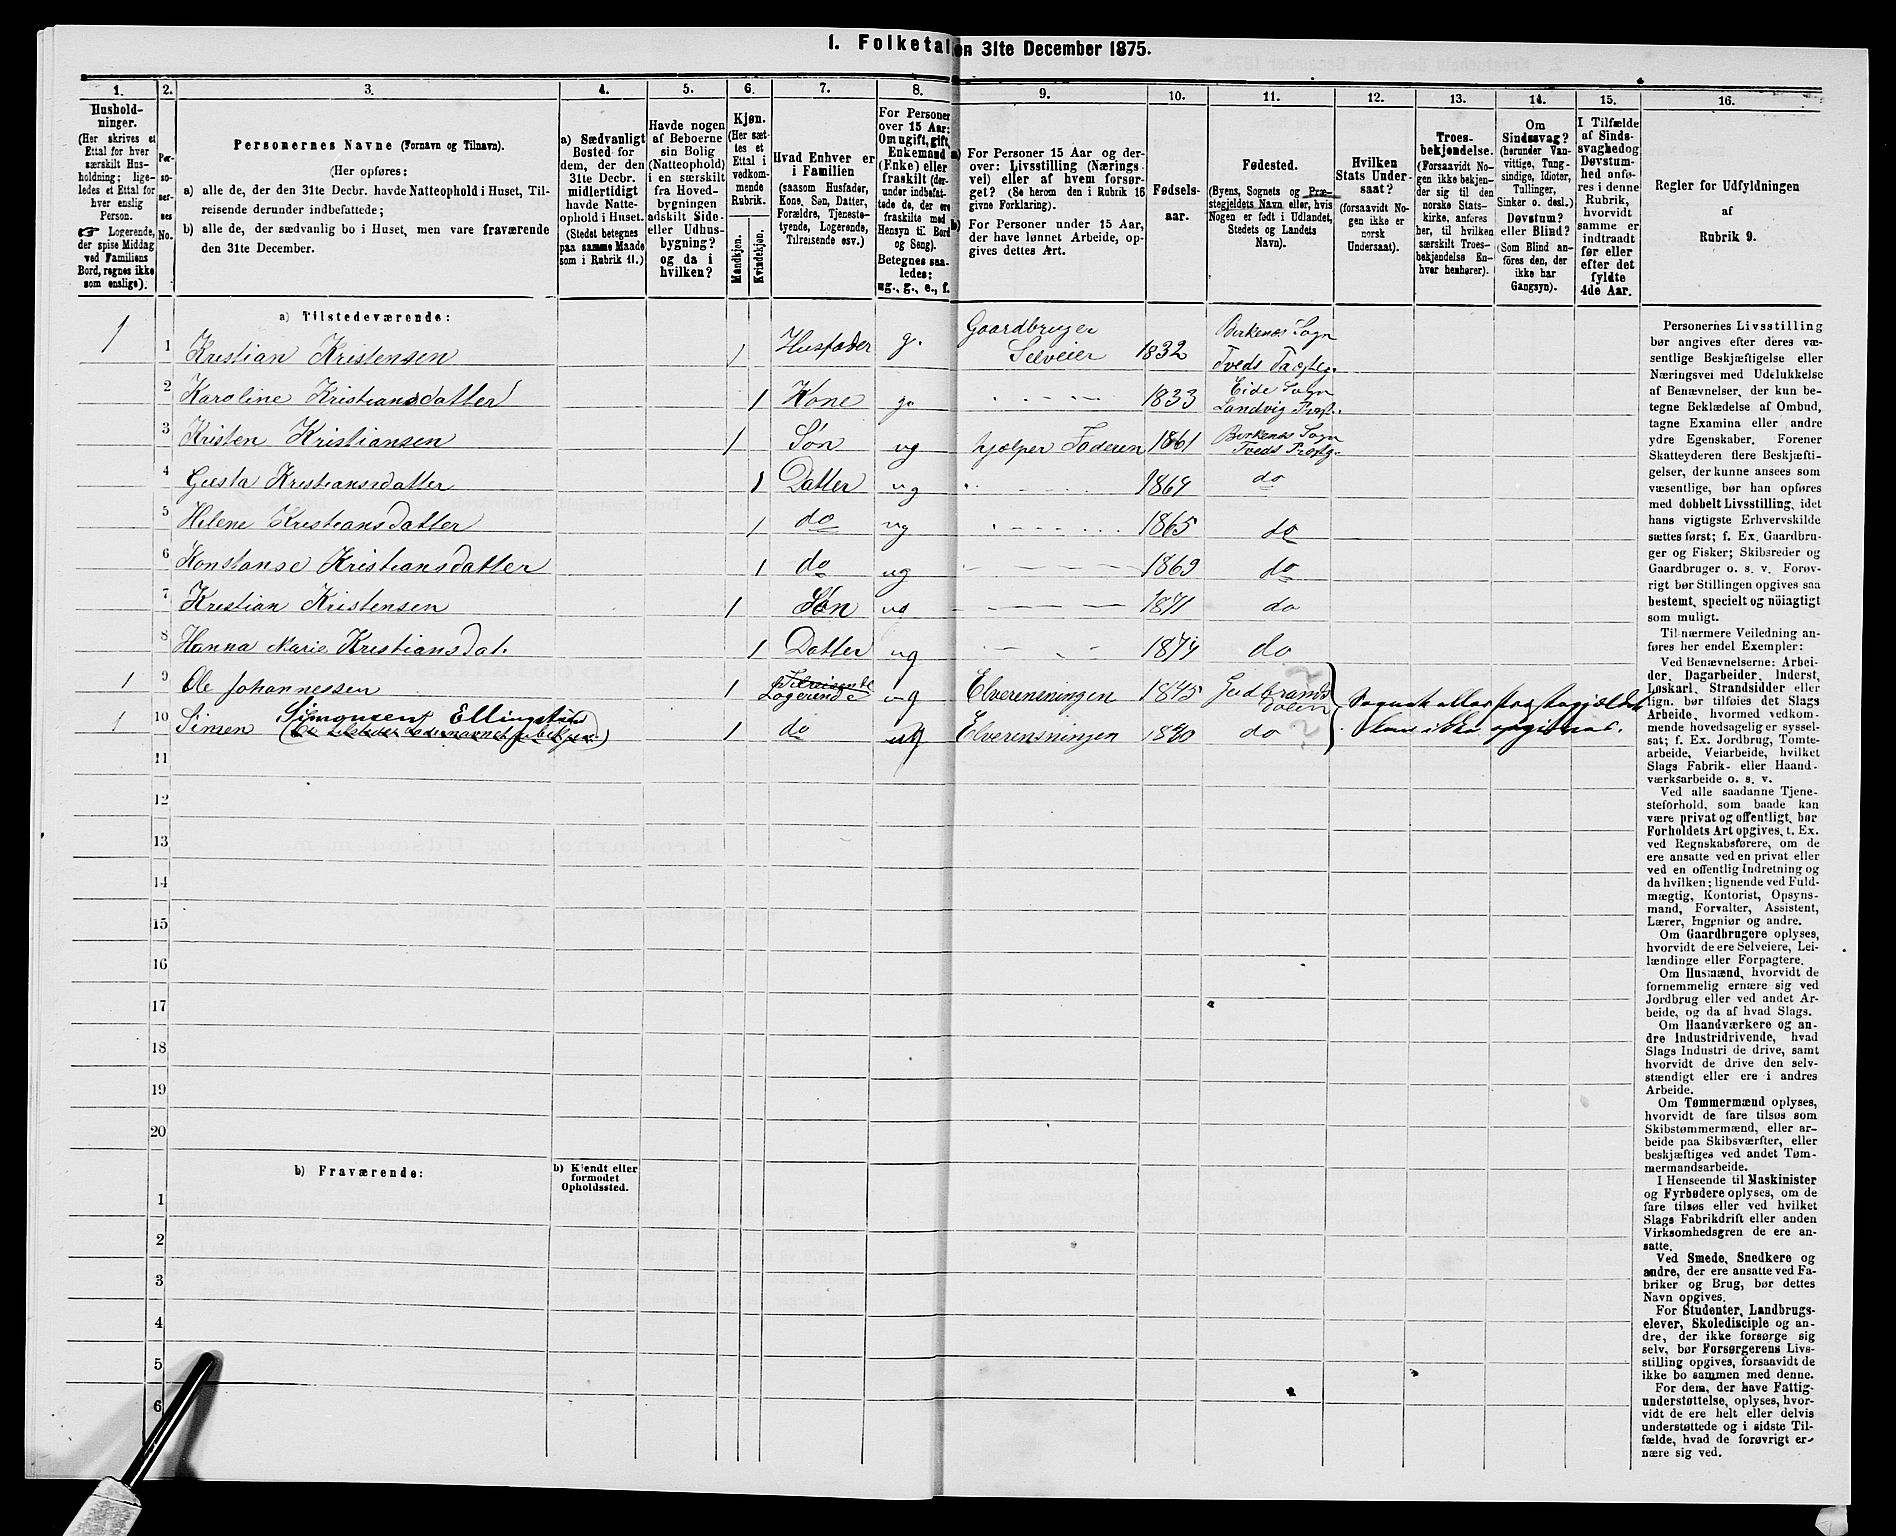 1. Folketal den 31te December 1875.
1. 2. 3. 4. 5. 6. 7. 8. 9. 10. 11. 12. 13. 14. 15. 16.
Hushold-
ninger.
(Her skrives et
Ettal for hver
særskilt Hus-
holdning; lige-
ledes et Ettal for
hver enslig
Person.
☞ Logerende,
der spise Middag
ved Familiens
Bord, regnes ikke
som enslige).
Per-
so-
ner-
nes
No.
Personernes Navne (Fornavn og Tilnavn).
(Her opføres:
a) alle de, der den 31te Decbr. havde Natteophold i Huset, Til-
reisende derunder indbefattede;
b) alle de, der sædvanlig bo i Huset, men vare fraværende
den 31te December.
a) Sædvanligt
Bosted for
dem, der den
31te Decbr.
midlertidigt
havde Natte-
ophold i Huset.
(Stedet betegnes
paa samme Maade
som i Rubrik 11.)
Havde nogen
af Beboerne
sin Bolig
(Natteophold)
i en særskilt
fra Hoved-
bygningen
adskilt Side-
eller Udhus-
bygning?
og da i
hvilken?
Kjøn.
(Her sæt-
tes et
Ettal i
vedkom-
mende
Rubrik.
Mandkjøn.
Kvindekjøn.
Hvad Enhver er
i Familien
(saasom Husfader,
Kone, Søn, Datter,
Forældre, Tjeneste-
tyende, Logerende,
Tilreisende osv.)
For Personer
over 15 Aar:
Om ugift, gift,
Enkemand
(Enke) eller
fraskilt (der-
under indbefat-
tede de, der ere
fraskilte med
Hensyn til Bord
og Seng).
Betegnes saa-
ledes:
ug., g., e., f.
a) For Personer 15 Aar og der-
over: Livsstilling (Nærings-
vei) eller af hvem forsør-
get? (Se herom den i Rubrik 16
givne Forklaring).
b) For Personer under 15 Aar,
der have lønnet Arbeide, op-
gives dettes Art.
Fødsels-
aar.
Fødested.
(Byens, Sognets og Præ-
stegjeldets Navn eller, hvis
Nogen er født i Udlandet,
Stedets og Landets
Navn).
Hvilken
Stats Under-
saat?
(forsaavidt No-
gen ikke er
norsk
Undersaat).
Troes-
bekjendelse.
(Forsaavidt No-
gen ikke bekjen-
der sig til den
norske Stats-
kirke, anføres
her, til hvilken
særskilt Troes-
bekjendelse En-
hver henhører).
Om
Sindssvag?
(herunder Van-
vittige, Tung-
sindige, Idioter,
Tullinger,
Sinker o. desl.)
Døvstum?
eller Blind?
(Som Blind an-
føres den, der
ikke har
Gangsyn).
I Tilfælde
af Sinds-
svaghed og
Døvstum-
hed anfø-
res i denne
Rubrik,
hvorvidt
samme er
indtraadt
før eller
efter det
fyldte
4de Aar.
Regler for Udfyldningen
af
Rubrik 9.
a) Tilstedeværende:
1 1 Kristian Kristensen 1 Husfader g. Gaardbruger Selveier 1832 Birkenæs Sogn Tveds Præstg.
2 Karoline Kristiansdatter 1 Kone g. 1833 Eide Sogn Landvig Præst.
3 Kristen Kristiansen 1 Søn ug hjælper Faderen 1861 Birkenæs Sogn Tveds Præstg.
4 Gusta Kristiansdatter 1 Datter ug 1864 do
5 Helene Kristiansdatter 1 do ug 1865 do
6 Konstanse Kristiansdatter 1 do ug 1869 do
7 Kristian Kristensen 1 Søn ug 1871 do
8 Hanna Marie Kristiansdat. 1 Datter ug 1874 do
1 9 Ole Johannessen 1 Tilreisende Logerende ug Elverensningen 1845 Gudbrands dalen
Sognet eller Præstegjældet
kan ikke opgives.
1 10 Simen Simonsen Ellingstad 1 do ug Elverensningen 1840 do
11
12
13
14
15
16
17
18
19
20
b) Fraværende:
b) Kjendt eller
formodet
Opholdssted.
1
2
3
4
5
6
Personernes Livsstilling
bør angives efter deres væ-
sentlige Beskjæftigelse eller
Næringsvei med Udelukkelse
af Benævnelser, der kun be-
tegne Beklædelse af Ombud,
tagne Examina eller andre
ydre Egenskaber. Forener
Skatteyderen flere Beskjæfti-
gelser, der kunne ansees som
væsentlige, bør han opføres
med dobbelt Livsstilling, idet
hans vigtigste Erhvervskilde
sættes først; f. Ex. Gaardbru-
ger og Fisker; Skibsreder og
Gaardbruger o. s. v. Forøv-
rigt bør Stillingen opgives saa
bestemt, specielt og nöiagtigt
som muligt.
Til nærmere Veiledning an-
føres her endel Exempler:
Ved Benævnelserne: Arbei-
der, Dagarbeider, Inderst,
Løskarl, Strandsidder eller
lign. bør tilføies det Slags
Arbeide, hvormed vedkom-
mende hovedsagelig er syssel-
sat; f. Ex. Jordbrug, Tomte-
arbeide, Veiarbeide, hvilket
Slags Fabrik- eller Haand-
værksarbeide o. s. v.
Ved alle saadanne Tjene-
steforhold, som baade kan
være privat og offentligt, bør
Forholdets Art opgives, t. Ex.
ved Regnskabsførere, om de
ere ansatte ved en privat eller
ved en offentlig Indretning og
da hvilken; lignende ved Fuld-
mægtig, Kontorist, Opsyns-
mand, Forvalter, Assistent,
Lærer, Ingeniør og andre.
Om Gaardbrugere oplyses,
hvorvidt de ere Selveiere, Lei-
lændinge eller Forpagtere.
Om Husmænd, hvorvidt de
fornemmelig ernære sig ved
Jordbrug eller ved andet Ar-
beide, og da af hvad Slags.
Om Haandværkere og an-
dre Industridrivende, hvad
Slags Industri de drive, samt
hvorvidt de drive den selv-
stændigt eller ere i andres
Arbeide.
Om Tømmermænd oplyses,
hvorvidt de fare tilsøs som
Skibstømmermænd, eller ar-
beide paa Skibsværfter, eller
beskjæftiges ved andet Tøm-
mermandsarbeide.
I Henseende til Maskinister
og Fyrbødere oplyses, om de
fare tilsøs eller ved hvilket
Slags Fabrikdrift eller anden
Virksomhedsgren de ere an-
satte.
Ved Smede, Snedkere og
andre, der ere ansatte ved Fa-
briker og Brug, bør dettes
Navn opgives.
For Studenter, Landbrugs-
elever, Skoledisciple og an-
dre, der ikke forsørge sig
selv, bør Forsørgerens Livs-
stilling opgives, forsaavidt de
ikke bo sammen med denne.
For dem, der have Fattig-
understøttelse, oplyses, hvor-
vidt de ere helt eller delvis
understøttede og i sidste Til-
fælde, hvad de forøvrigt er-
nære sig ved.